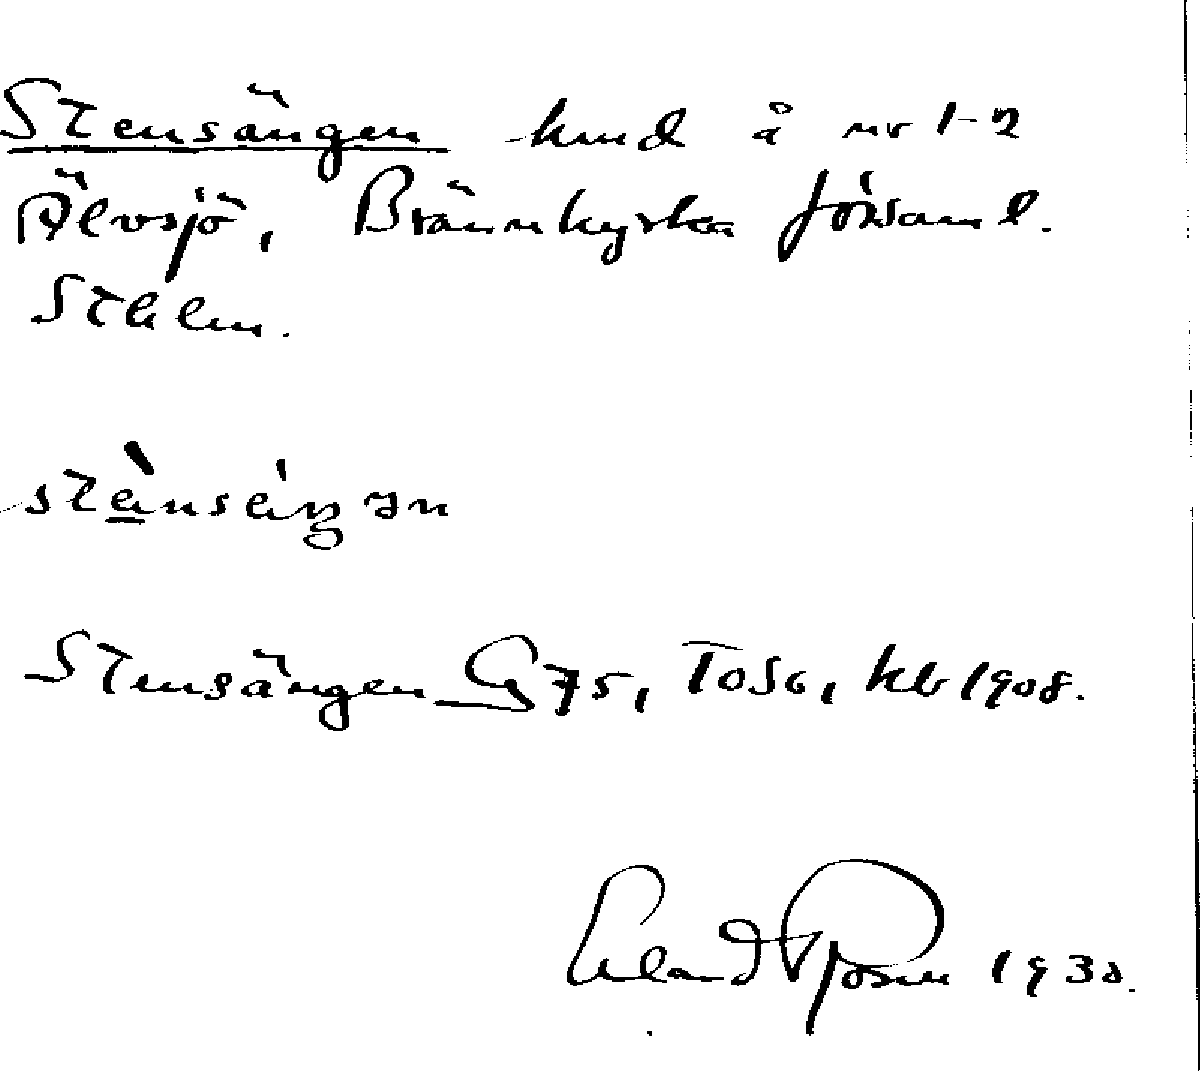 Stensängen hmd å nr 1-2
Älvsjö, Brännkyrka församl.
Sthlm.
Stensängen G 75, kb 1908.
Erland Rosell 1930.